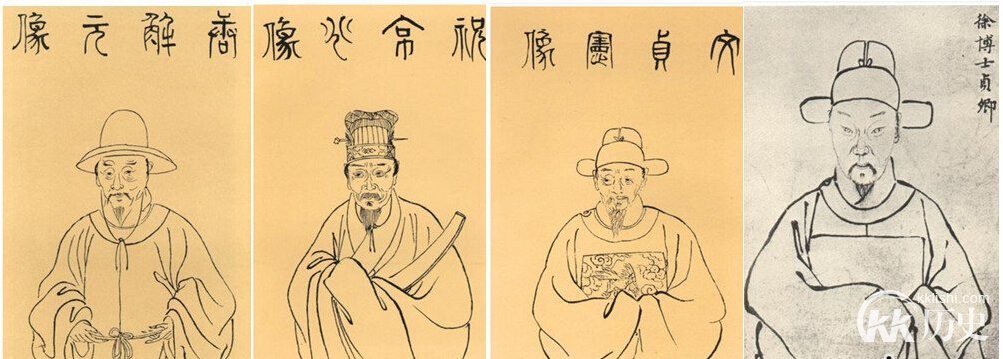 唐解元像
祝京兆像
文貞憲像
徐博士貞卿
kklishi.com
KK历史